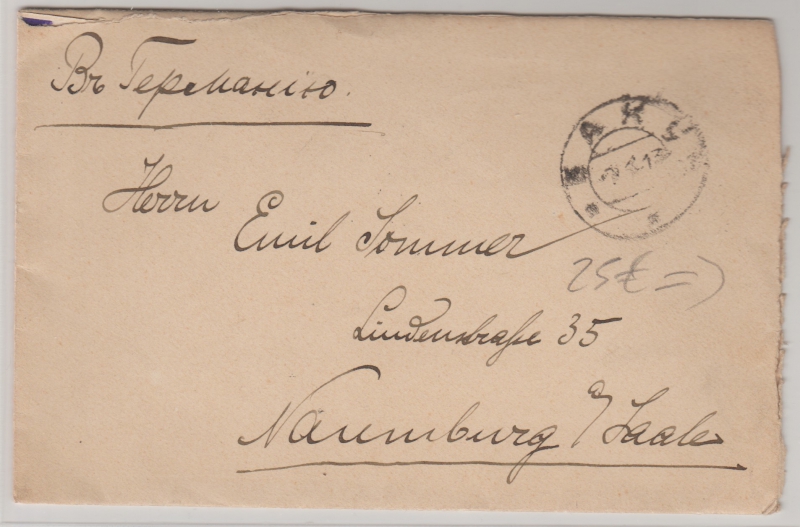 Въ Германію.
БАКУ
Herrn
Emil Sommer
25€ =>
Lindenstraße 35
Naumburg a/Saale